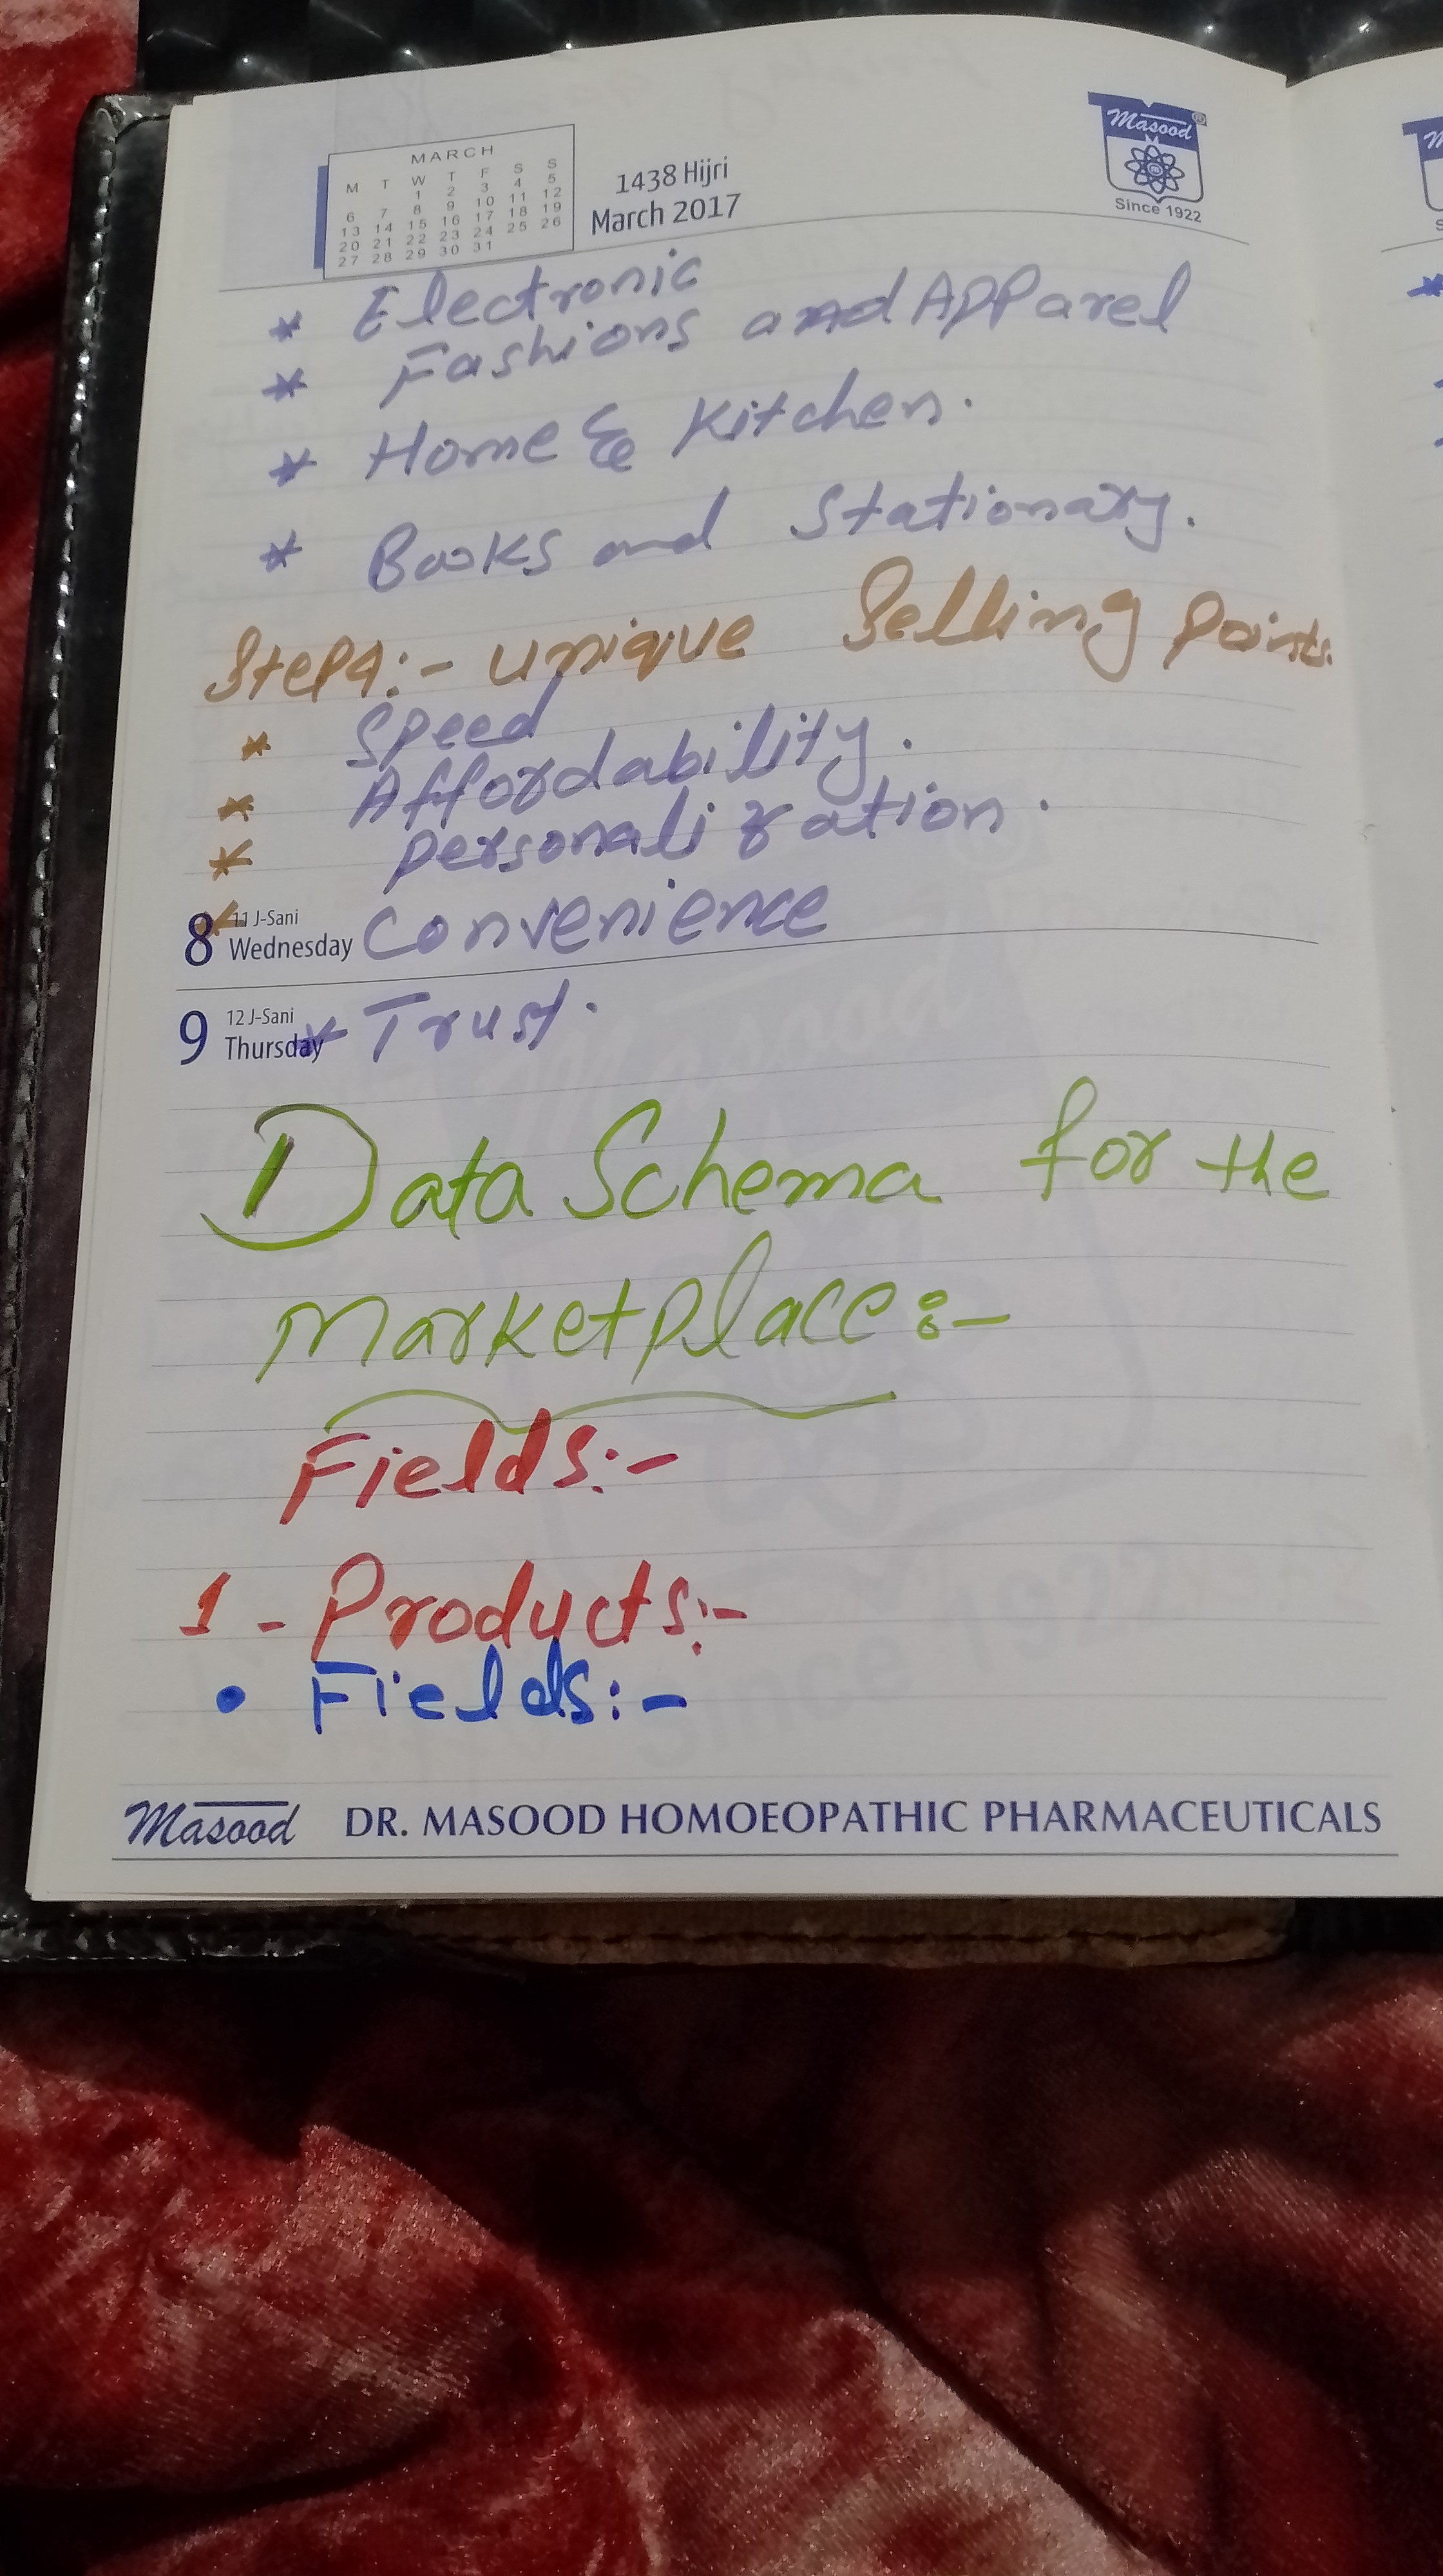 MARCH
M T W T F S S
1 2 3 4 5
6 7 8 9 10 11 12
13 14 15 16 17 18 19
20 21 22 23 24 25 26
27 28 29 30 31
1438 Hijri
March 2017
Masood
Since 1922
* Electronic
* Fashions and Apparel
* Home & Kitchen.
* Books and Stationary.
Step4:- unique Selling Points.
* Speed
* Affordability.
* personalization.
8 11 J-Sani
Wednesday Convenience
9 12 J-Sani
Thursday * Trust.
Data Schema for the
Marketplace:-
Fields:-
1 - Products:-
• Fields:-
Masood DR. MASOOD HOMOEOPATHIC PHARMACEUTICALS